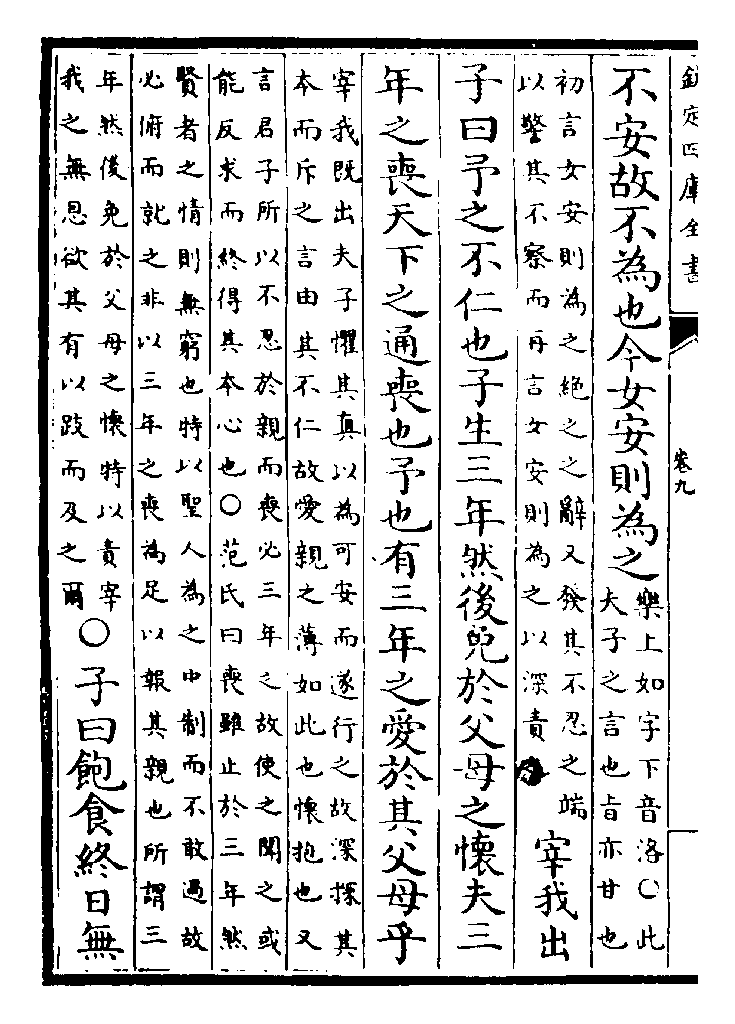 欽定四庫全書
卷九
不安故不為也今女安則為之
樂上如字下音洛○此
夫子之言也旨亦甘也
初言女安則為之絶之之辭又發其不忍之端
以警其不察而再言女安則為之以深責
宰我出
子曰予之不仁也子生三年然後免於父母之懷夫三
年之喪天下之通喪也予也有三年之愛於其父母乎
宰我既出夫子懼其真以為可安而遂行之故深探其
本而斥之言由其不仁故愛親之薄如此也懷抱也又
言君子所以不忍於親而喪必三年之故使之聞之或
能反求而終得其本心也○范氏曰喪雖止於三年然
賢者之情則無窮也特以聖人為之中制而不敢過故
必俯而就之非以三年之喪為足以報其親也所謂三
年然後免於父母之懷特以責宰
我之無恩欲其有以跂而及之爾
○子曰飽食終日無